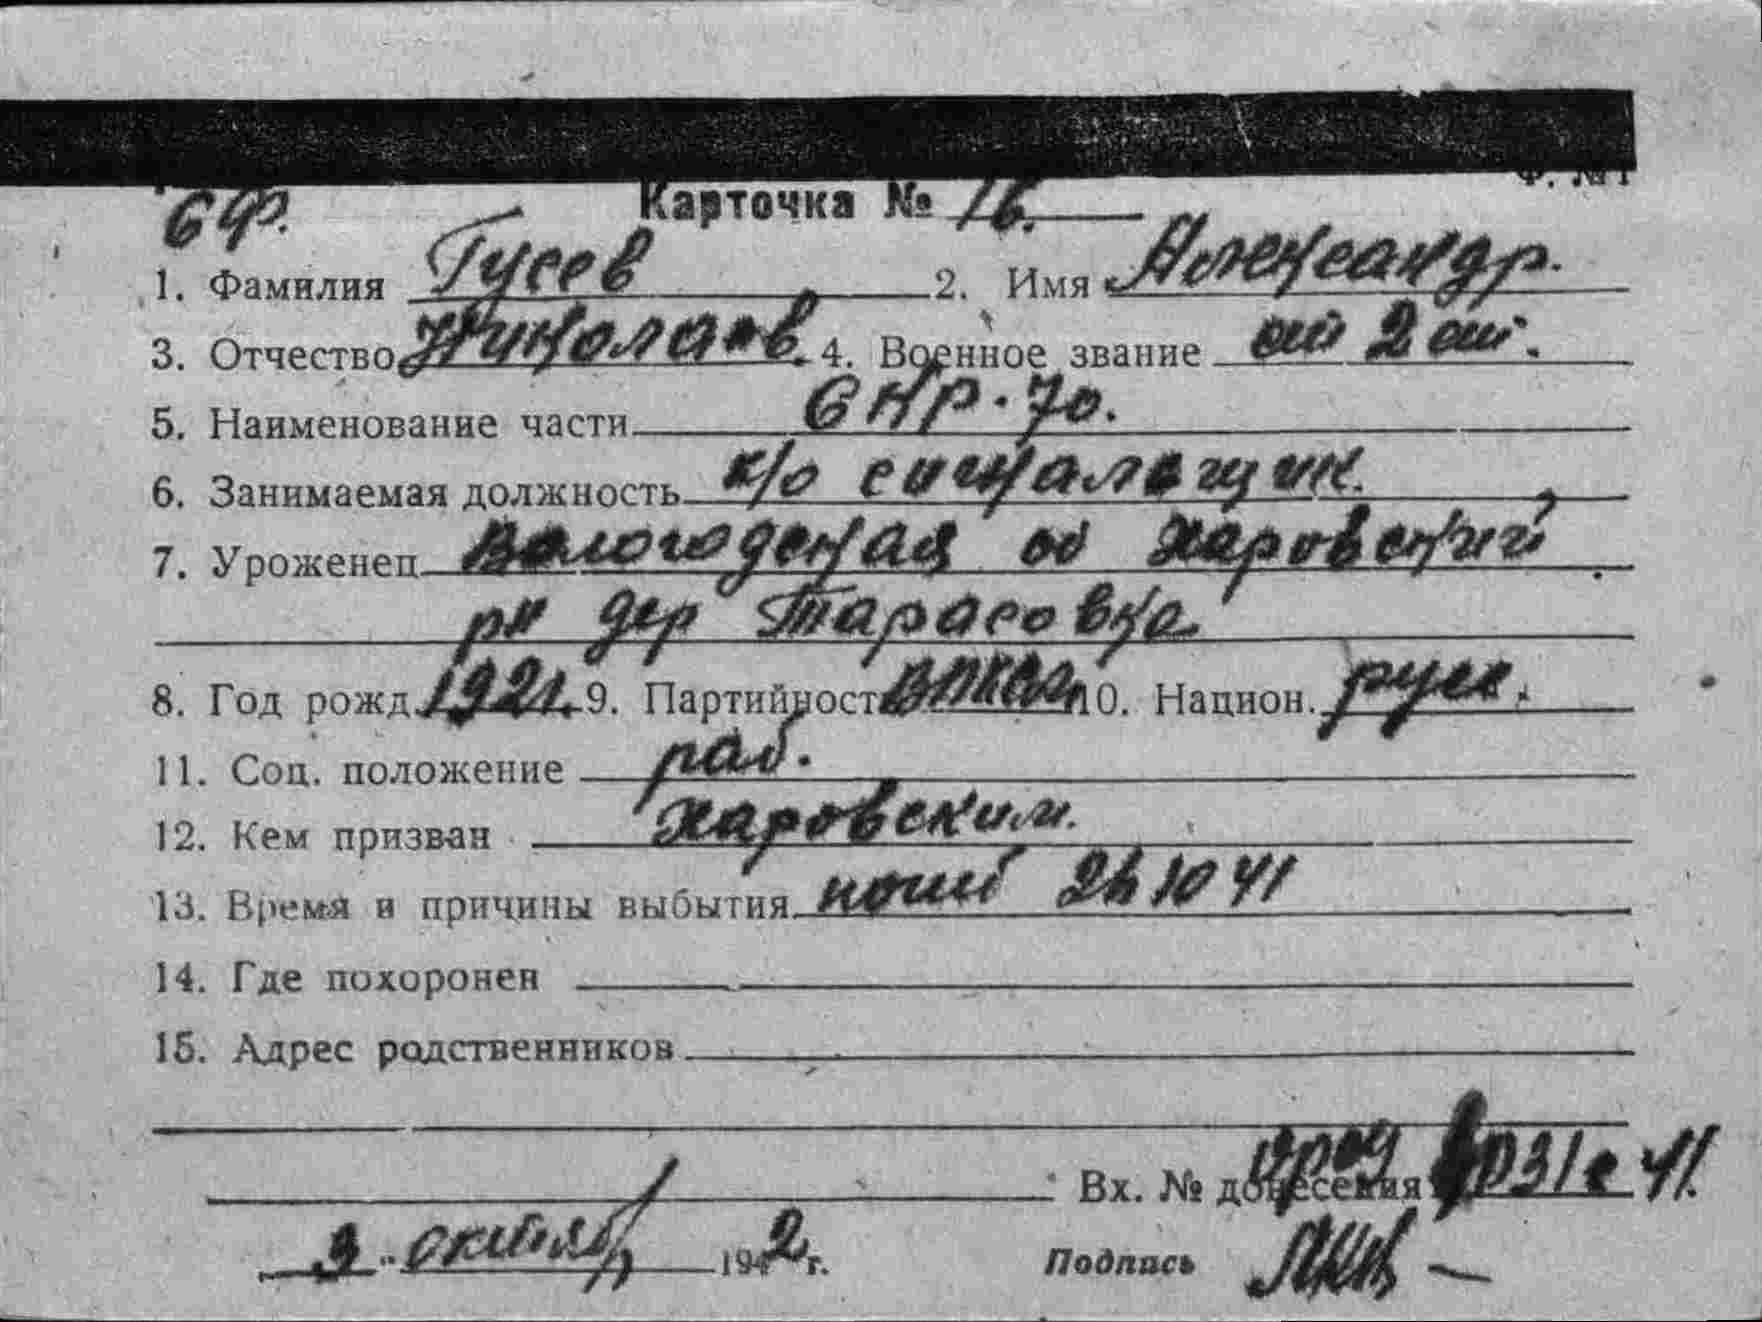 Ф. № 1
СФ. Карточка № 16.
1. Фамилия Гусев 2. Имя Александр.
3. Отчество Николаев. 4. Военное звание ст 2 ст.
5. Наименование части СКР-70.
6. Занимаемая должность к/о сигнальщик.
7. Уроженец Вологодская об Харовский
рн дер Тарасовка
8. Год рожд. 1921. 9. Партийность 10. Национ. русс.
11. Соц. положение раб.
12. Кем призван Харовским.
13. Время и причины выбытия погиб 24 10 41
14. Где похоронен
15. Адрес родственников
Вх. № донесения 1031с 41.
9 октября 1942 г. Подпись